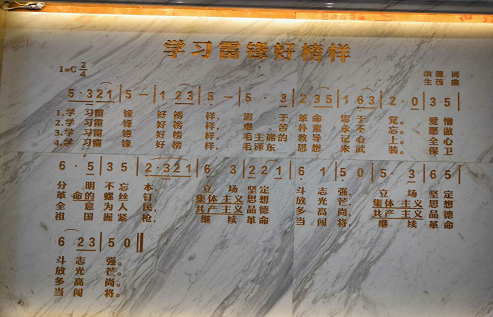 学习雷锋好榜样
1=C 2/4
洪源 词
生茂 曲
5·3 2 1 | 5 - | 1 2 3 | 5 - | 5 · 3 | 2 3 5 | 1 6 3 | 2 · 0 | 3 5 |
1.学 习雷 锋 好 榜 样, 忠 于 革命 忠 于 党。 爱 憎
2.学 习雷 锋 好 榜 样, 艰 苦 朴素 永 不 忘。 愿 做
3.学 习雷 锋 好 榜 样, 毛 主席的 教导 记 心 上。 全 心
4.学 习雷 锋 好 榜 样, 毛 泽东 思想 来 武 装。 保 卫
6 · 5 | 3 5 | 2 321 | 6 · 3 | 2 2 1 | 6 · 3 | 5 0 | 5 · 3 | 6 5 |
分 明 不 忘 本 立 场 坚定 斗 志 强。 立 场 坚 定
革 命的 螺 丝 钉 集体 主义 思想 放 光 芒。 集体 主义 思 想
全 意 为 人 民 共产 主义 品德 多 高 尚。 共产 主义 品 德
祖 国 握 紧 枪, 继 续 革命 当 闯 将。 继 续 革 命
6 · 2 3 | 5 0 ‖
斗 志 强。
放 光 芒。
多 高 尚。
当 闯 将。